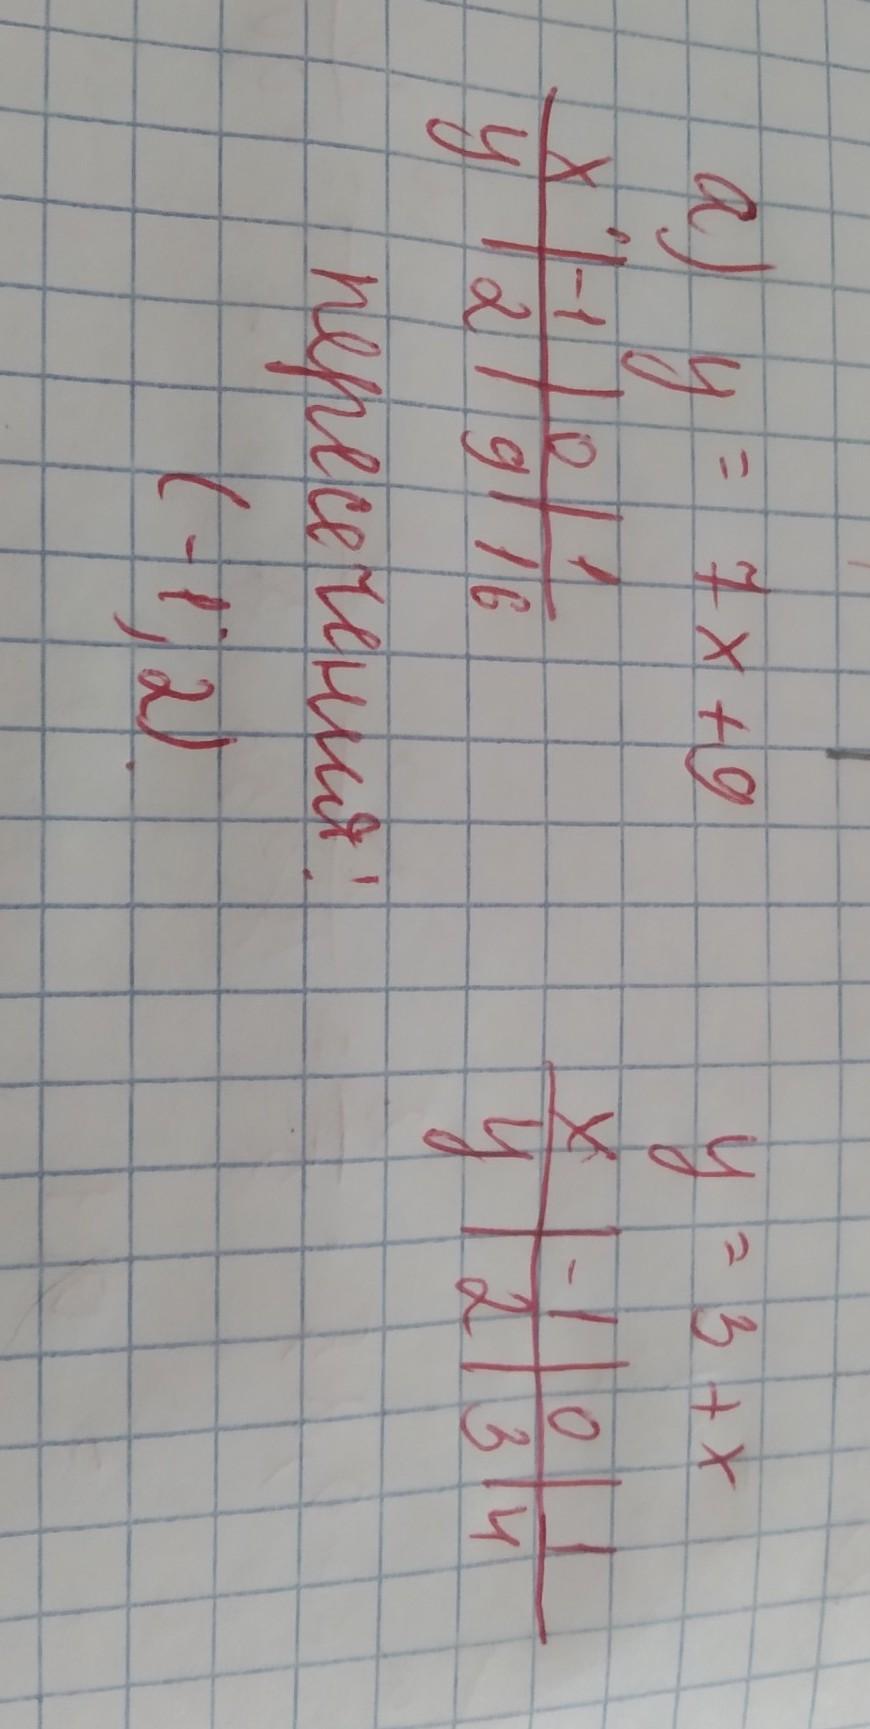 а) у = 7х + 9 у = 3 + х
х -1 0 1 х -1 0 1
у 2 9 16 у 2 3 4
пересечения:
(-1; 2)